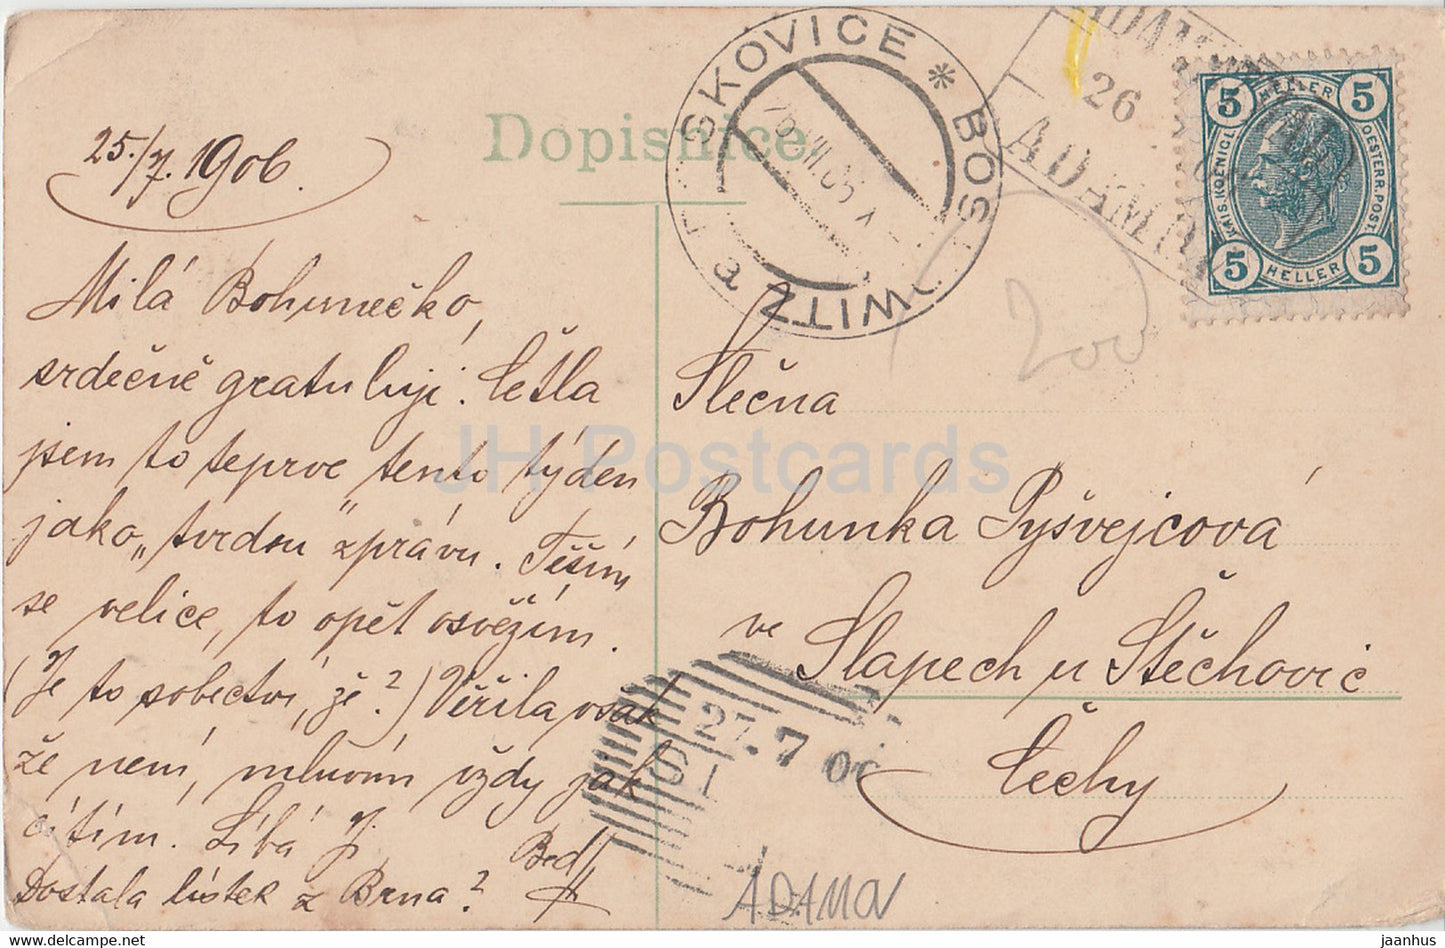 Dopisnice
25./7. 1906.
Milá Bohunečko,
srdečně gratuluji. Četla
jsem to teprve tento týden
jako „tvrdou“ zprávu. Těším
se velice, to opět osvěžím.
(Je to sobectví, že?) Věřila však
že není, mluvím vždy jak
cítím. Líbá Ji
Bed
Dostala lístek z Brna?
Slečna
Bohunka Pyšvejcová
ve Slapech u Štěchovic
Čechy
SKOVICE * BOS
WITZ
ADAM
26
ADAM
5 HELLER 5
KAIS. KOENIGL.
OESTERR. POST.
5 HELLER 5
200
27. 7 06
ADAMOV
JH Postcards
jaanhus @ hiphostamps.com